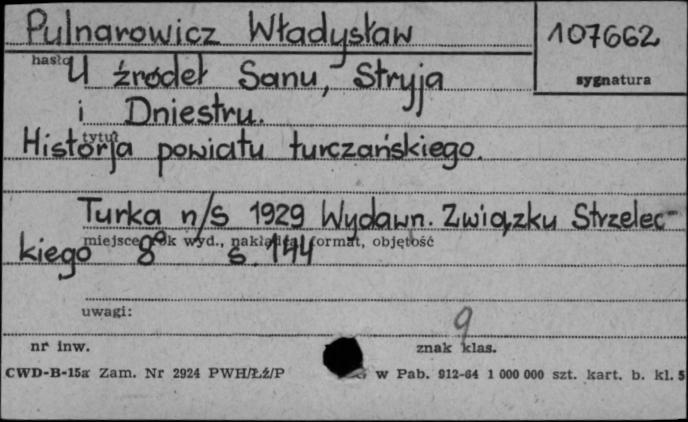 Pulnarowicz Władysław
107662
hasło
sygnatura
U źródeł Sanu, Stryja
i Dniestru.
tytuł
Historja powiatu turczańskiego.
Turka n/S 1929 Wydawn. Związku Strzelec-
miejsce, rok wyd., nakładca, format, objętość
kiego 8° s. 144
uwagi:
9
nr inw.
znak klas.
CWD-B-15a Zam. Nr 2924 PWH/Łź/P w Pab. 912-64 1 000 000 szt. kart. b. kl. 5